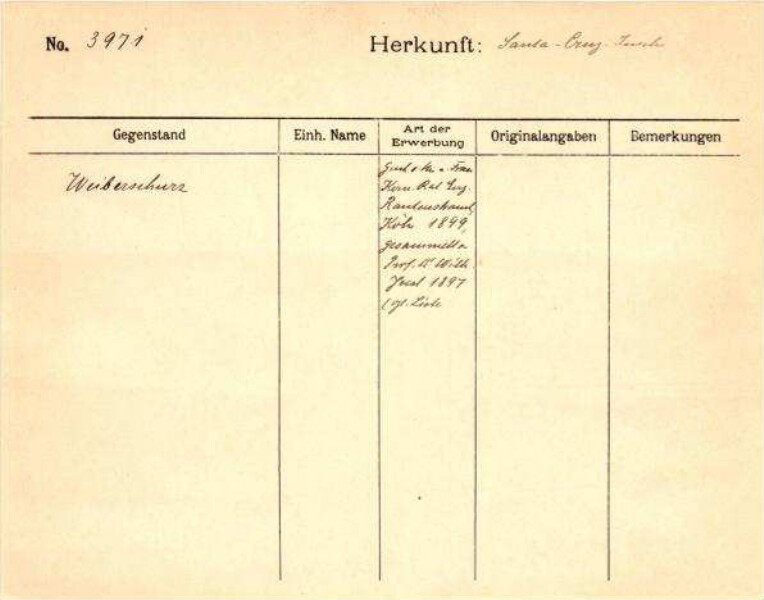 No. 3971 Herkunft: Santa-Cruz-Inseln
Gegenstand Einh. Name Art der Erwerbung Originalangaben Bemerkungen
Weiberschurz
Frau
Kom. Rat Eug.
Rautenstrauch,
Köln 1899,
gesammelt v.
Prof. Dr Wilh.
Joest 1897
(gl. Liste